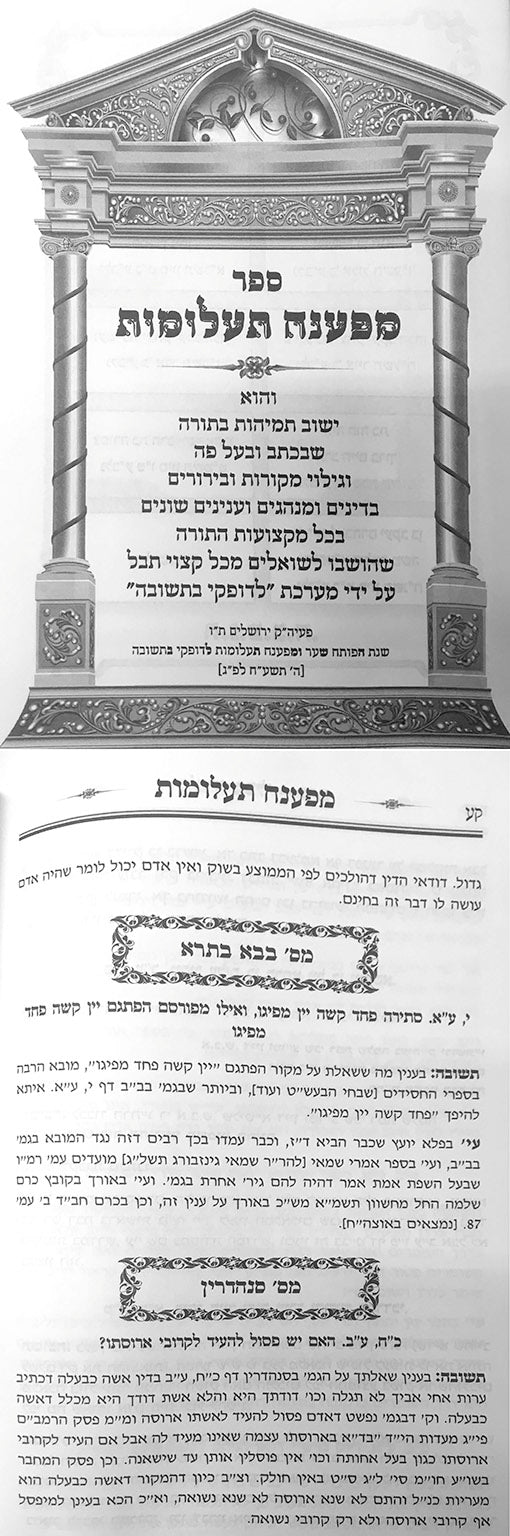 ספר
מפענח תעלומות
והוא
ישוב תמיהות בתורה
שבכתב ובעל פה
וגילוי מקורות ובירורים
בדינים ומנהגים וענינים שונים
בכל מקצועות התורה
שהושבו לשואלים מכל קצוי תבל
על ידי מערכת "לדופקי בתשובה"
פעיה"ק ירושלים ת"ו
שנת הפותח שער ומפענח תעלומות לדופקי בתשובה
[ה' תשע"ח לפ"ג]
מפענח תעלומות
קע
גדול. דודאי הדין דהולכים לפי הממוצע בשוק ואין אדם יכול לומר שהיה אדם
עושה לו דבר זה בחינם.
מס' בבא בתרא
י, ע"א. סתירה פחד קשה יין מפיגו, ואילו מפורסם הפתגם יין קשה פחד
מפיגו
תשובה: בענין מה ששאלת על מקור הפתגם "יין קשה פחד מפיגו", מובא הרבה
בספרי החסידים [שבחי הבעש"ט ועוד], וביותר שבגמ' בב"ב דף י, ע"א. איתא
להיפך "פחד קשה יין מפיגו".
עי' בפלא יועץ שכבר הביא ד"ז, וכבר עמדו בכך רבים דזה נגד המובא בגמ'
בב"ב, ועי' בספר אמרי שמאי [להר"ר שמאי גינזבורג תשל"ג] מועדים עמ' רמ"ו
שבעל השפת אמת אמר דהיה להם גיר' אחרת בגמ'. ועי' באורך בקובץ כרם
שלמה החל מחשוון תשמ"א מש"כ באורך על ענין זה, וכן בכרם חב"ד ב' עמ'
87. [נמצאים באוצה"ח].
מס' סנהדרין
כ"ח, ע"ב. האם יש פסול להעיד לקרובי ארוסתו?
תשובה: בענין שאלתך על הגמ' בסנהדרין דף כ"ח, ע"ב בדין אשה כבעלה דכתיב
ערות אחי אביך לא תגלה וכו' דודתך היא והלא אשת דודך היא מכלל דאשה
כבעלה. וק' דבגמ' נפשט דאדם פסול להעיד לאשתו ארוסה ומ"מ פסק הרמב"ם
פי"ג מעדות הי"ד "בד"א בארוסתו עצמה שאינו מעיד לה אבל אם העיד לקרובי
ארוסתו כגון בעל אחותה וכו' אין פוסלין אותן עד שישאנה. וכן פסק המחבר
בשו"ע חו"מ סי' ל"ג ס"ט באין חולק. וצ"ב כיון דהמקור דאשה כבעלה הוא
מעריות כנ"ל והתם לא שנא ארוסה לא שנא נשואה, וא"כ הכא בעינן למיפסל
אף קרובי ארוסה ולא רק קרובי נשואה.